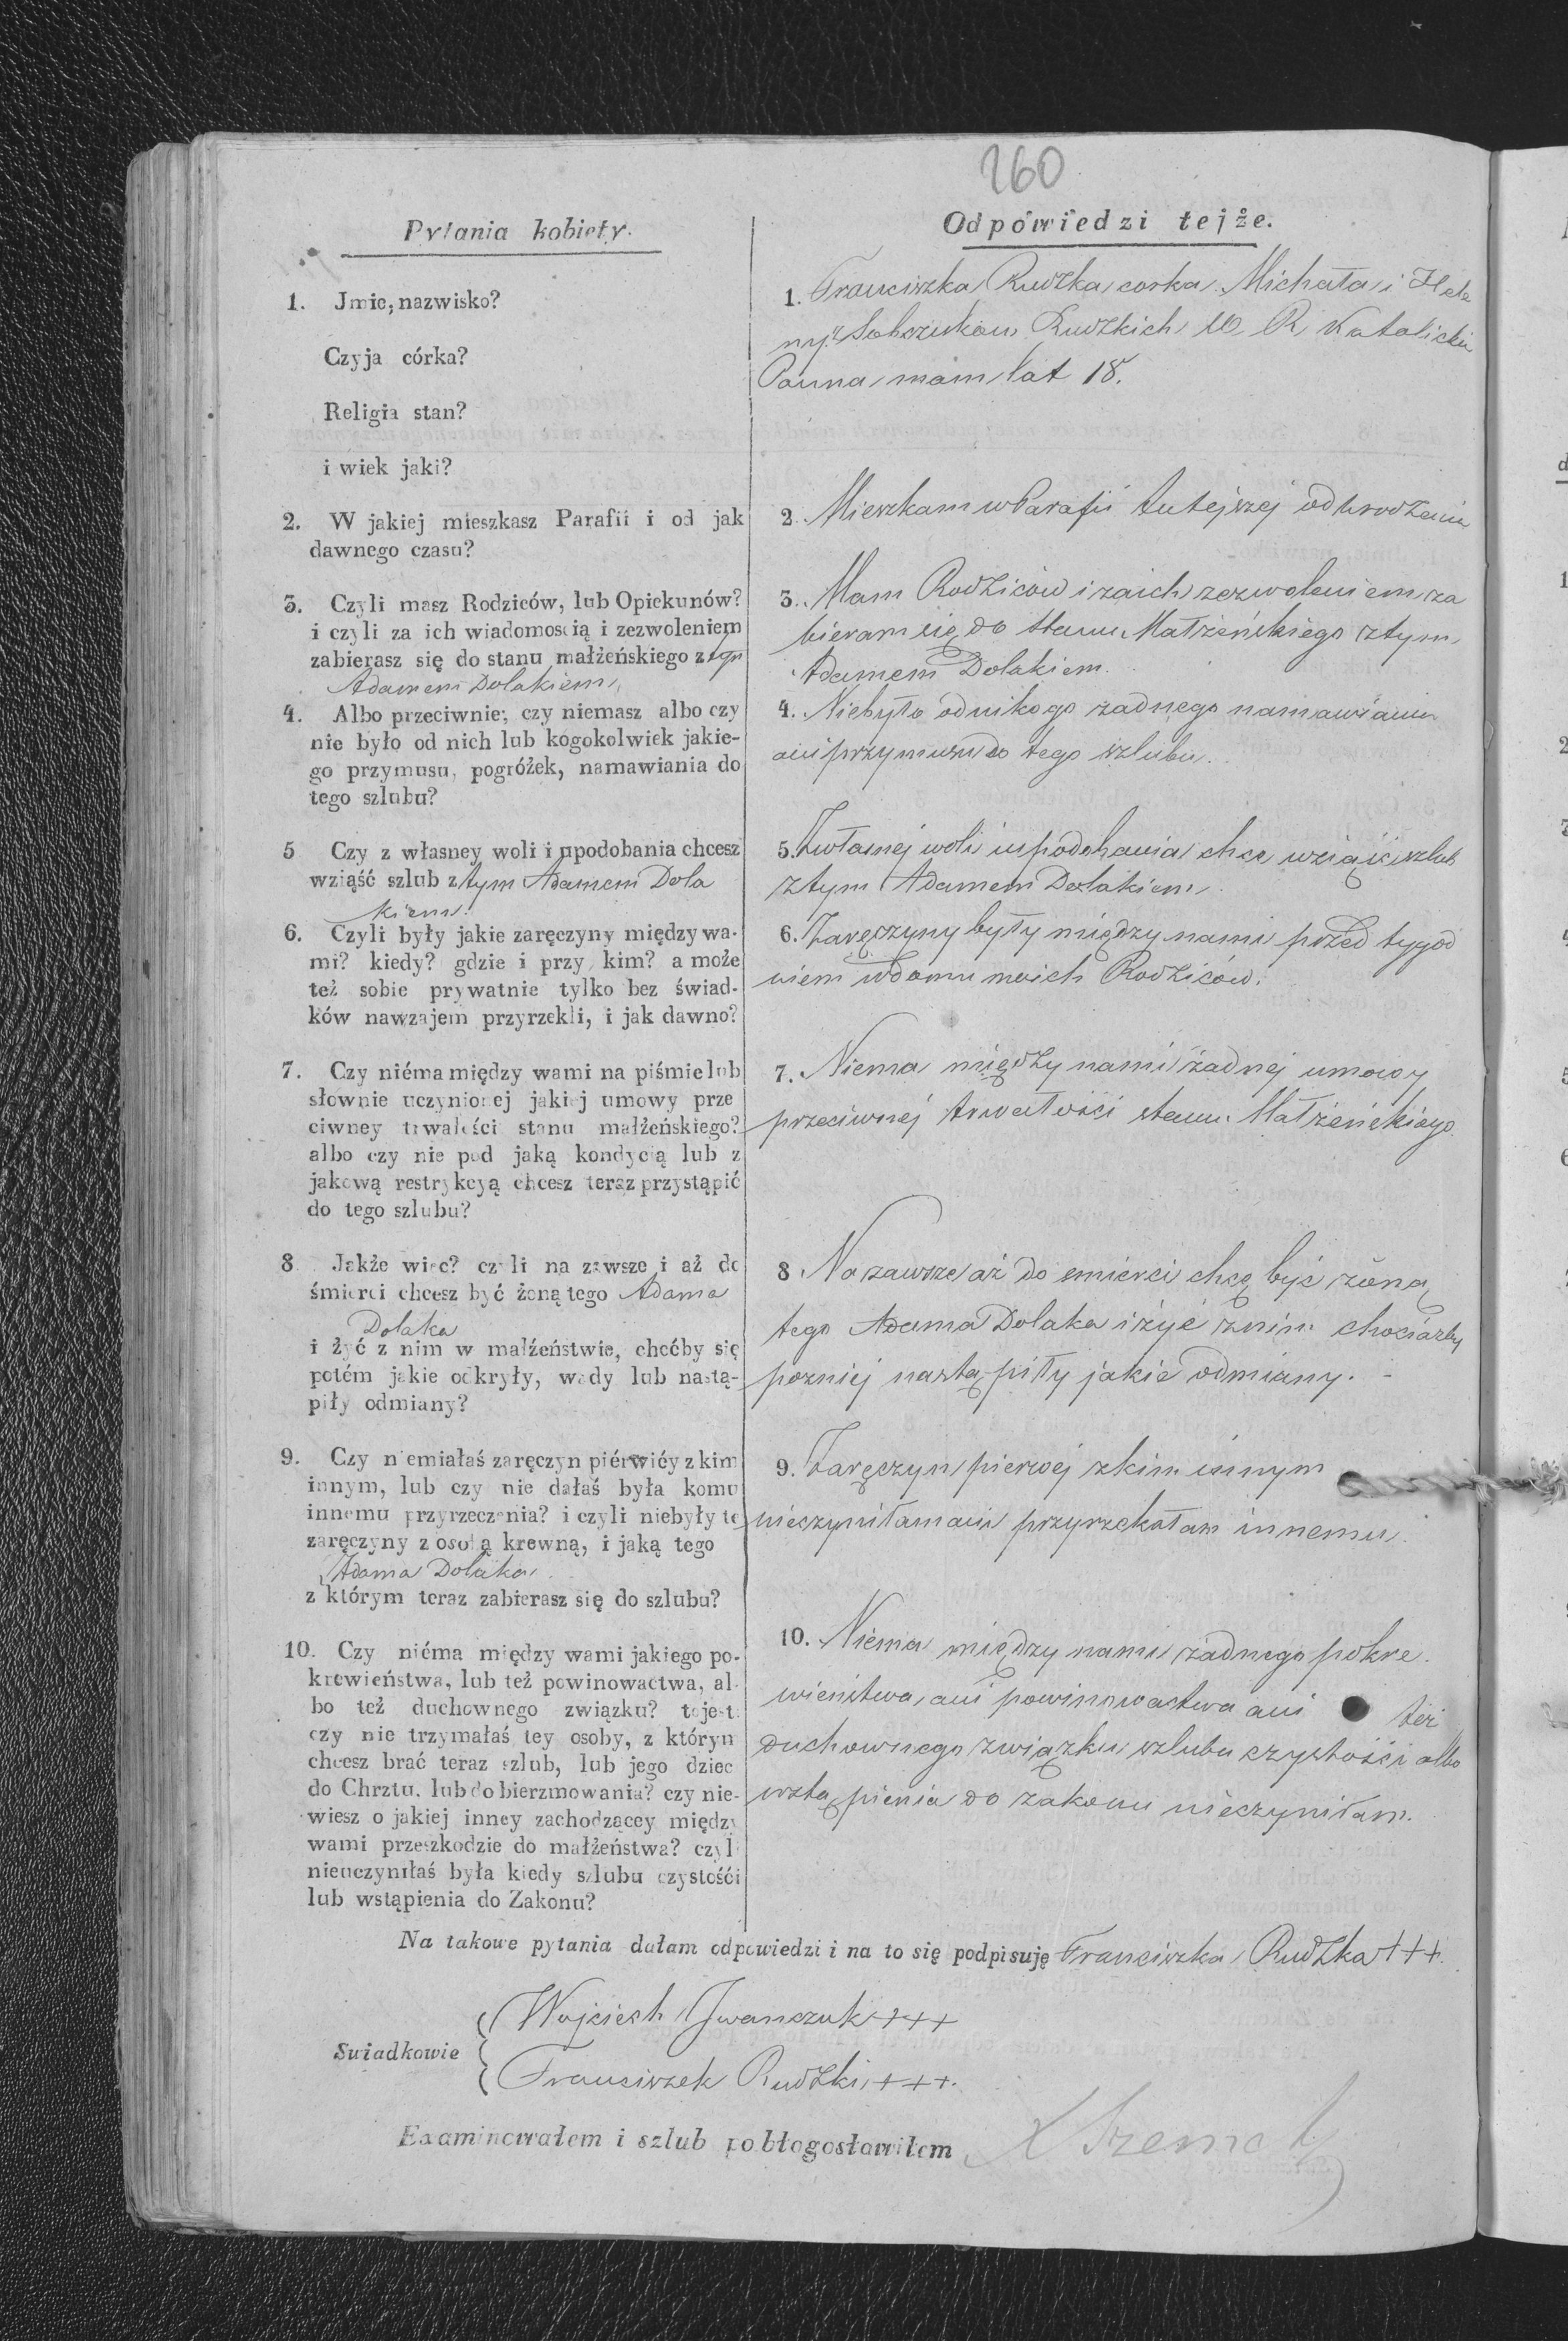 160
Pytania kobiety.
Odpowiedzi tejże.
1. Jmie, nazwisko?
Czyja córka?
Religia stan?
i wiek jaki?
1. Franciszka Rudzka corka Michała i Hele
ny z Sobczukow Rudzkich W. R. Katolickie
Panna mam lat 18.
2. W jakiej mieszkasz Parafii i od jak
dawnego czasu?
2. Mieszkam w Parafii tutejszej od urodzenia
3. Czyli masz Rodziców, lub Opiekunów?
i czyli za ich wiadomością i zezwoleniem
zabierasz się do stanu małżeńskiego z tym
Adamem Dolakiem
3. Mam Rodziców i za ich zezwoleniem za
bieram się do stanu Małżeńskiego z tym
Adamem Dolakiem.
4. Albo przeciwnie, czy niemasz albo czy
nie było od nich lub kogokolwiek jakie-
go przymusu, pogróżek, namawiania do
tego szlubu?
4. Niebyło od nikogo żadnego namawiania
ani przymusu do tego szlubu.
5 Czy z własney woli i upodobania chcesz
wziąść szlub z tym Adamem Dola
kiem.
5. Z własnej woli i upodobania chce wziąść szlub
z tym Adamem Dolakiem.
6. Czyli były jakie zaręczyny między wa-
mi? kiedy? gdzie i przy kim? a może
też sobie prywatnie tylko bez świad-
ków nawzajem przyrzekli, i jak dawno?
6. Zaręczyny były między nami przed tygod
niem w domu moich Rodziców.
7. Czy niéma między wami na piśmie lub
słownie uczynionej jakiej umowy prze
ciwney trwałości stanu małżeńskiego?
albo czy nie pod jaką kondycią lub z
jakową restrykcyą chcesz teraz przystąpić
do tego szlubu?
7. Niema między nami żadnej umowy
przeciwnej trwałości stanu Małżeńskiego
8 Jakże więc? czyli na zawsze i aż do
śmierci chcesz być żoną tego Adama
Dolaka
i żyć z nim w małżeństwie, choćby się
potém jakie odkryły, wady lub nastą-
piły odmiany?
8 Na zawsze aż do smierci chcę być żoną
tego Adama Dolaka i żyć z nim chociażby
pozniej nastąpiły jakie odmiany.
9. Czy niemiałaś zaręczyn piérwiéy z kim
innym, lub czy nie dałaś była komu
innemu przyrzeczenia? i czyli niebyły te
zaręczyny z osobą krewną, i jaką tego
Adama Dolaka
z którym teraz zabierasz się do szlubu?
9. Zaręczyn pierwej z kim innym
nieczyniłam ani przyrzekałam innemu.
10. Czy niéma między wami jakiego po-
krewieństwa, lub też powinowactwa, al-
bo też duchownego związku? to jest:
czy nie trzymałaś tey osoby, z którym
chcesz brać teraz szlub, lub jego dziec
do Chrztu, lub do bierzmowania? czy nie-
wiesz o jakiej inney zachodzącey między
wami przeszkodzie do małżeństwa? czyli
nieuczyniłaś była kiedy szlubu czystośći
lub wstąpienia do Zakonu?
10. Niema między nami żadnego pokre-
wieństwa, ani powinowactwa ani też
duchownego związku szlubu czystości albo
wstąpienia do zakonu nieczyniłam.
Na takowe pytania dałam odpowiedzi i na to się podpisuję Franciszka Rudzka +++.
Swiadkowie
Wojciech Jwanczuk +++
Franciszek Rudzki +++.
Examinowałem i szlub pobłogosławiłem X